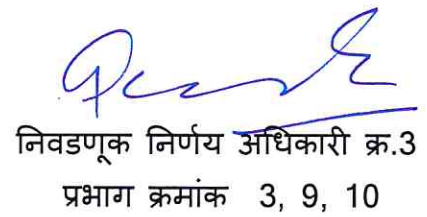 निवडणूक निर्णय अधिकारी क्र.3
प्रभाग क्रमांक 3, 9, 10